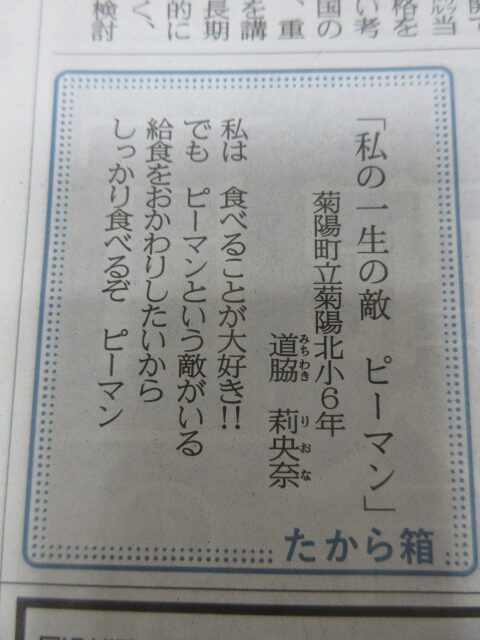 「私の一生の敵　ピーマン」
菊陽町立菊陽北小６年
道脇　莉央奈
みちわき　りおな
私は　食べることが大好き!!
でも　ピーマンという敵がいる
給食をおかわりしたいから
しっかり食べるぞ　ピーマン
たから箱
格を
い考
国の
、重
を講
長期
的に
く、
検討